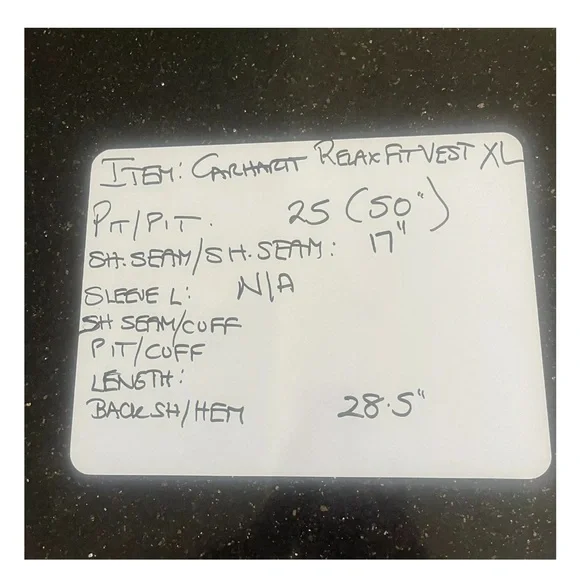 ITEM: CARHARTT RELAX FIT VEST XL
PIT/PIT. 25 (50")
SH.SEAM/SH.SEAM: 17"
SLEEVE L: N/A
SH SEAM/CUFF
PIT/CUFF
LENGTH:
BACK SH/HEM 28.5"